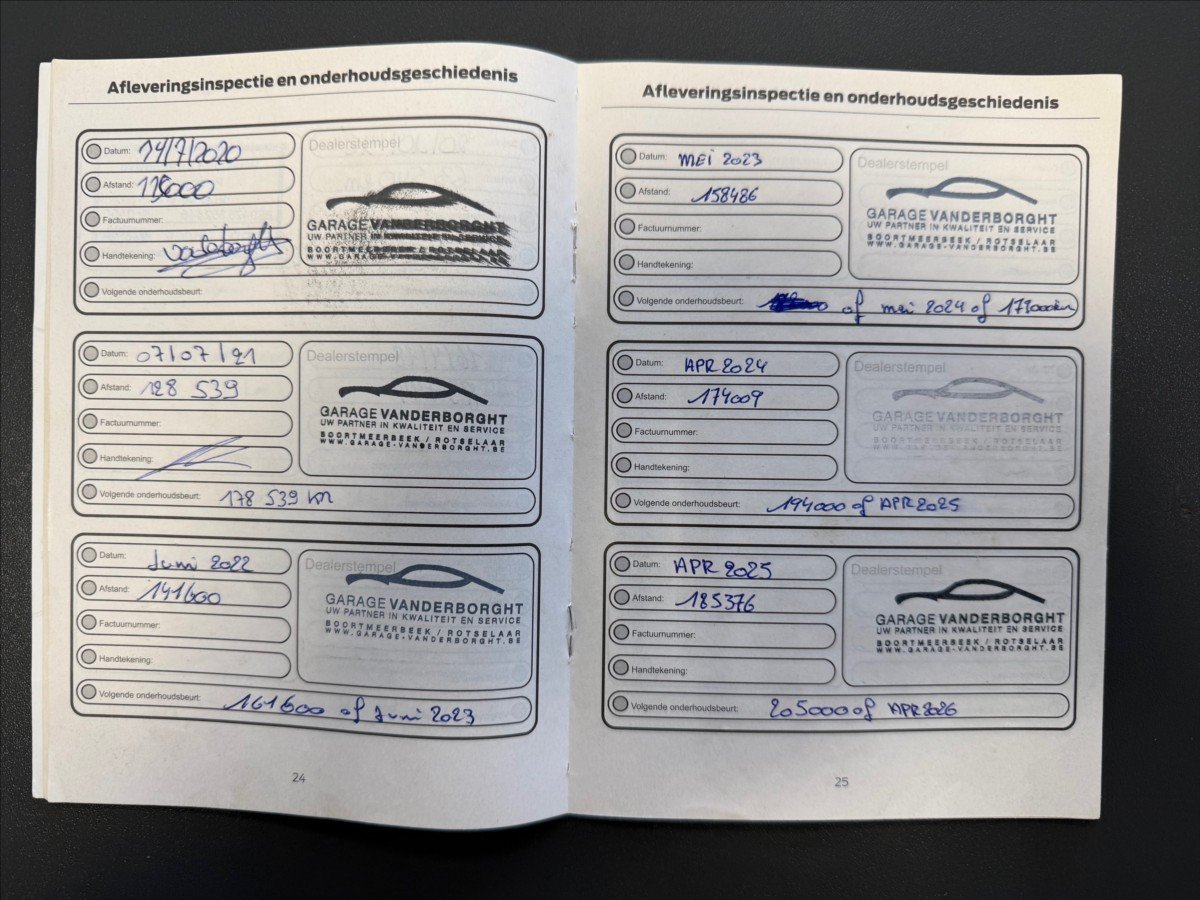 Afleveringsinspectie en onderhoudsgeschiedenis
Datum: 14/7/2020
Afstand:
Factuurnummer:
Handtekening:
Volgende onderhoudsbeurt:
Dealerstempel
GARAGE VANDERBORGHT
UW PARTNER IN KWALITEIT EN SERVICE
BOORTMEERBEEK / ROTSELAAR
WWW.GARAGE-VANDERBORGHT.BE
Datum: 07/07/21
Afstand: 128 539
Factuurnummer:
Handtekening:
Volgende onderhoudsbeurt: 178 539 km
Dealerstempel
GARAGE VANDERBORGHT
UW PARTNER IN KWALITEIT EN SERVICE
BOORTMEERBEEK / ROTSELAAR
WWW.GARAGE-VANDERBORGHT.BE
Datum: Juni 2022
Afstand: 141600
Factuurnummer:
Handtekening:
Volgende onderhoudsbeurt: 161600 of Juni 2023
Dealerstempel
GARAGE VANDERBORGHT
UW PARTNER IN KWALITEIT EN SERVICE
BOORTMEERBEEK / ROTSELAAR
WWW.GARAGE-VANDERBORGHT.BE
24
Afleveringsinspectie en onderhoudsgeschiedenis
Datum: MEI 2023
Afstand: 158486
Factuurnummer:
Handtekening:
Volgende onderhoudsbeurt: of mei 2024 of
Dealerstempel
GARAGE VANDERBORGHT
UW PARTNER IN KWALITEIT EN SERVICE
BOORTMEERBEEK / ROTSELAAR
WWW.GARAGE-VANDERBORGHT.BE
Datum: APR 2024
Afstand: 174009
Factuurnummer:
Handtekening:
Volgende onderhoudsbeurt: 194000 of APR 2025
Dealerstempel
GARAGE VANDERBORGHT
UW PARTNER IN KWALITEIT EN SERVICE
BOORTMEERBEEK / ROTSELAAR
WWW.GARAGE-VANDERBORGHT.BE
Datum: APR 2025
Afstand: 185376
Factuurnummer:
Handtekening:
Volgende onderhoudsbeurt: 205000 of APR 2026
Dealerstempel
GARAGE VANDERBORGHT
UW PARTNER IN KWALITEIT EN SERVICE
BOORTMEERBEEK / ROTSELAAR
WWW.GARAGE-VANDERBORGHT.BE
25